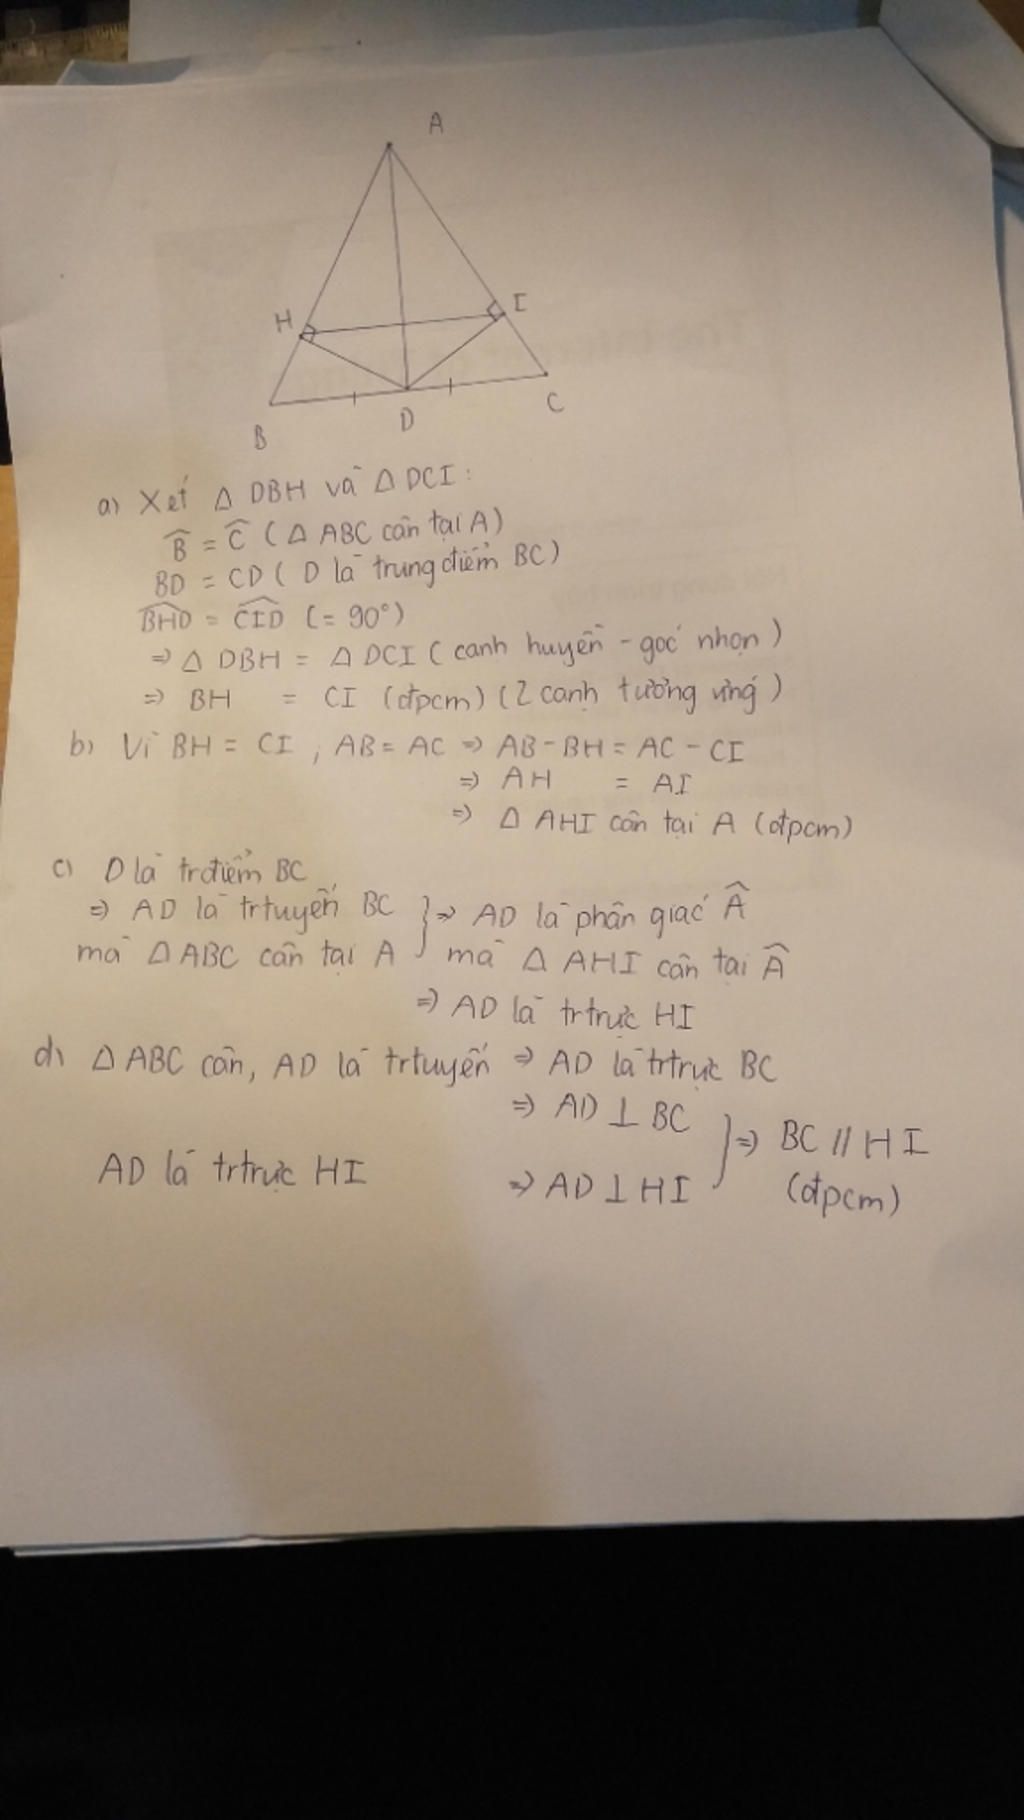 A
H
I
B
D
C
a) Xét △ DBH và △ DCI:
B̂ = Ĉ (△ ABC cân tại A)
BD = CD (D là trung điểm BC)
B̂HD = ĈID (= 90°)
⇒ △ DBH = △ DCI (cạnh huyền - góc nhọn)
⇒ BH = CI (đpcm) (2 cạnh tương ứng)
b) Vì BH = CI, AB = AC ⇒ AB - BH = AC - CI
⇒ AH = AI
⇒ △ AHI cân tại A (đpcm)
c) D là trđiểm BC
⇒ AD là trtuyến BC } ⇒ AD là phân giác Â
mà △ ABC cân tại A mà △ AHI cân tại Â
⇒ AD là trtrực HI
d) △ ABC cân, AD là trtuyến ⇒ AD là trtrực BC
⇒ AD ⊥ BC
} ⇒ BC // HI
AD là trtrực HI ⇒ AD ⊥ HI (đpcm)